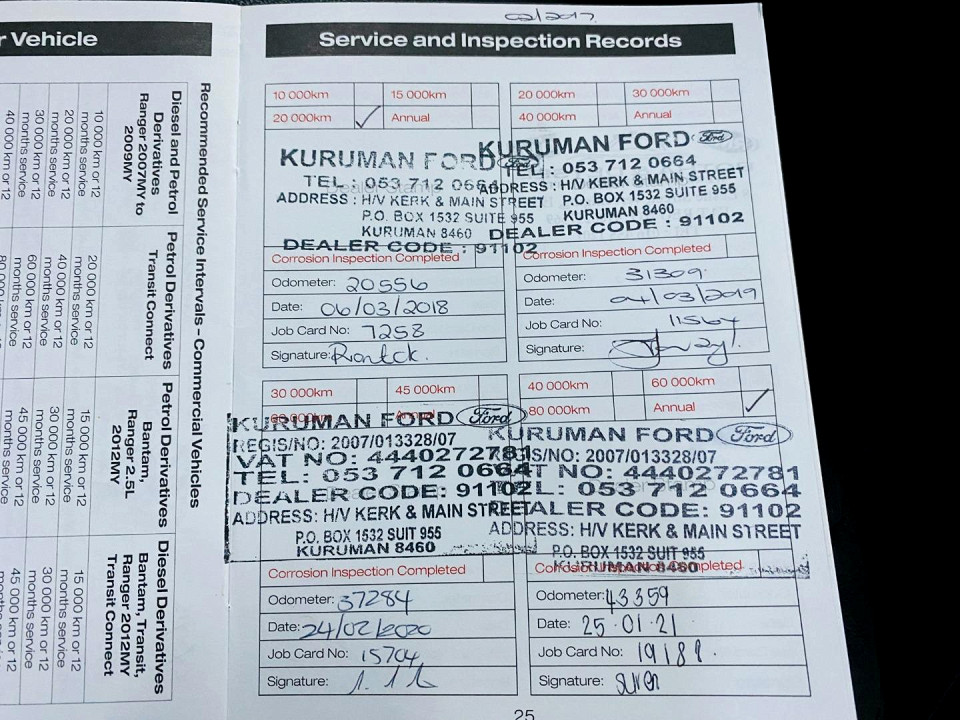 02/2017.
r Vehicle
Recommended Service Intervals - Commercial Vehicles
Diesel and Petrol
Derivatives
Ranger 2007MY to
2009MY
10 000km or 12
months service
20 000km or 12
months service
30 000km or 12
months service
40 000 km or 12
Petrol Derivatives
Transit Connect
20 000km or 12
months service
40 000 km or 12
months service
60 000 km or 12
months service
Petrol Derivatives
Bantam,
Ranger 2.5L
2012MY
15 000 km or 12
months service
30 000 km or 12
months service
45 000 km or 12
months service
Diesel Derivatives
Bantam, Transit,
Ranger 2012MY
Transit Connect
15 000 km or 12
months service
30 000 km or 12
months service
45 000 km or 12
months service
Service and Inspection Records
10 000km 15 000km
20 000km ✓ Annual
KURUMAN FORD Ford
TEL : 053 712 0664
ADDRESS : H/V KERK & MAIN STREET
P.O. BOX 1532 SUITE 955
KURUMAN 8460
DEALER CODE : 91102
Corrosion Inspection Completed
Odometer: 20556
Date: 06/03/2018
Job Card No: 7258
Signature:
20 000km 30 000km
40 000km Annual
KURUMAN FORD Ford
TEL : 053 712 0664
ADDRESS : H/V KERK & MAIN STREET
P.O. BOX 1532 SUITE 955
KURUMAN 8460
DEALER CODE : 91102
Corrosion Inspection Completed
Odometer: 31309.
Date: 04/03/2019
Job Card No: 11564
Signature:
30 000km 45 000km
KURUMAN FORD Ford
REGIS/NO: 2007/013328/07
VAT NO: 4440272781
TEL: 053 712 0664
DEALER CODE: 91102
ADDRESS: H/V KERK & MAIN STREET
P.O. BOX 1532 SUIT 955
KURUMAN 8460
Corrosion Inspection Completed
Odometer: 37284
Date: 24/02/2020
Job Card No: 15704
Signature:
40 000km 60 000km
80 000km Annual ✓
KURUMAN FORD Ford
REGIS/NO: 2007/013328/07
VAT NO: 4440272781
TEL: 053 712 0664
DEALER CODE: 91102
ADDRESS: H/V KERK & MAIN STREET
P.O. BOX 1532 SUIT 955
KURUMAN 8460
Corrosion Inspection Completed
Odometer: 43359
Date: 25.01.21
Job Card No: 19188.
Signature:
25